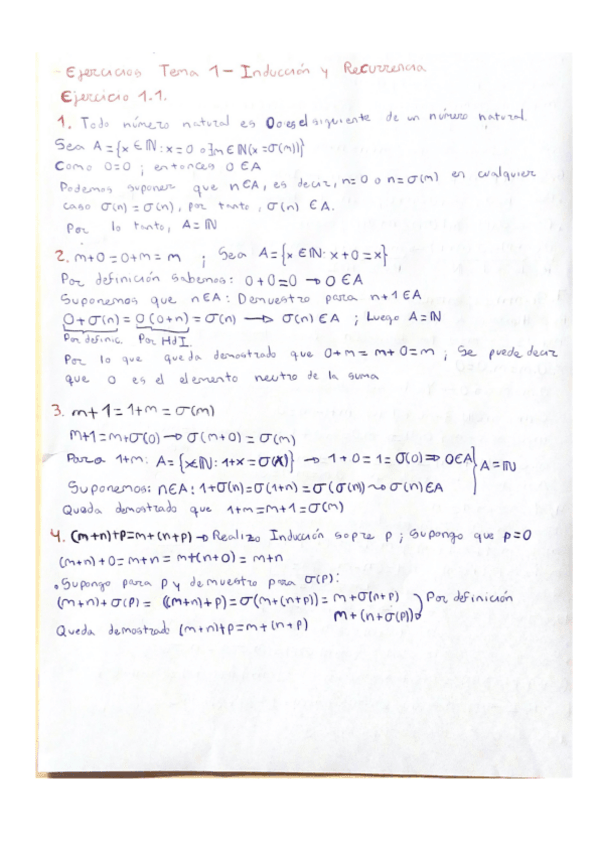 - Ejercicios Tema 1 - Inducción y Recurrencia
Ejercicio 1.1.
1. Todo número natural es 0 o es el siguiente de un número natural
Sea A = {x ∈ ℕ : x = 0 o ∃m ∈ ℕ (x = σ(m))}
Como 0=0 ; entonces 0 ∈ A
Podemos suponer que n ∈ A, es decir, n = 0 o n = σ(m) en cualquier
caso σ(n) = σ(n), por tanto, σ(n) ∈ A.
Por lo tanto, A = ℕ
2. m+0 = 0+m = m ; Sea A = {x ∈ ℕ : x+0 = x}
Por definición sabemos: 0+0=0 → 0 ∈ A
Suponemos que n ∈ A : Demuestro para n+1 ∈ A
0+σ(n) = σ(0+n) = σ(n) → σ(n) ∈ A ; Luego A = ℕ
Por definic. Por HdI.
Por lo que queda demostrado que 0+m = m+0 = m ; Se puede decir
que 0 es el elemento neutro de la suma
3. m+1 = 1+m = σ(m)
m+1 = m+σ(0) → σ(m+0) = σ(m)
Para 1+m: A = {x ∈ ℕ : 1+x = σ(x)} → 1+0 = 1 = σ(0) ⇒ 0 ∈ A } A = ℕ
Suponemos: n ∈ A : 1+σ(n) = σ(1+n) = σ(σ(n)) ⇝ σ(n) ∈ A
Queda demostrado que 1+m = m+1 = σ(m)
4. (m+n)+p = m+(n+p) → Realizo Inducción sopre p ; Supongo que p=0
(m+n)+0 = m+n = m+(n+0) = m+n
• Supongo para p y demuestro para σ(p):
(m+n)+σ(p) = ((m+n)+p) = σ(m+(n+p)) = m+σ(n+p) } Por definición
m+(n+σ(p))
Queda demostrado (m+n)+p = m+(n+p)